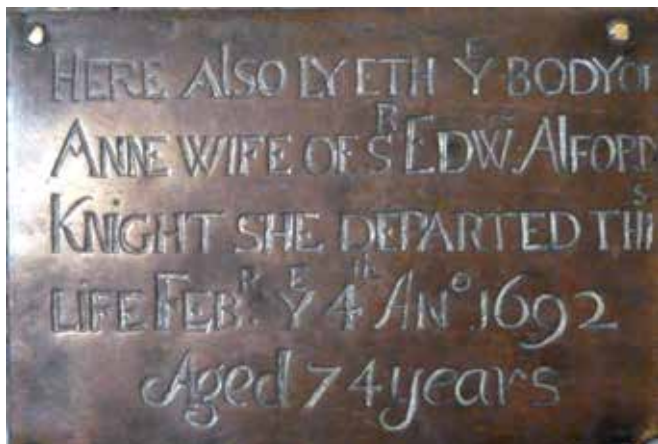 HERE AlSO LYETH Yᴱ BODY OF
ANNE WIFE OF Sᴿ EDW: AlFORD
KNiGHT SHE DEPARTED THiS
LiFE FEBᴿ: Yᴱ 4ᵗʰ ANº. 1692
Aged 74 years